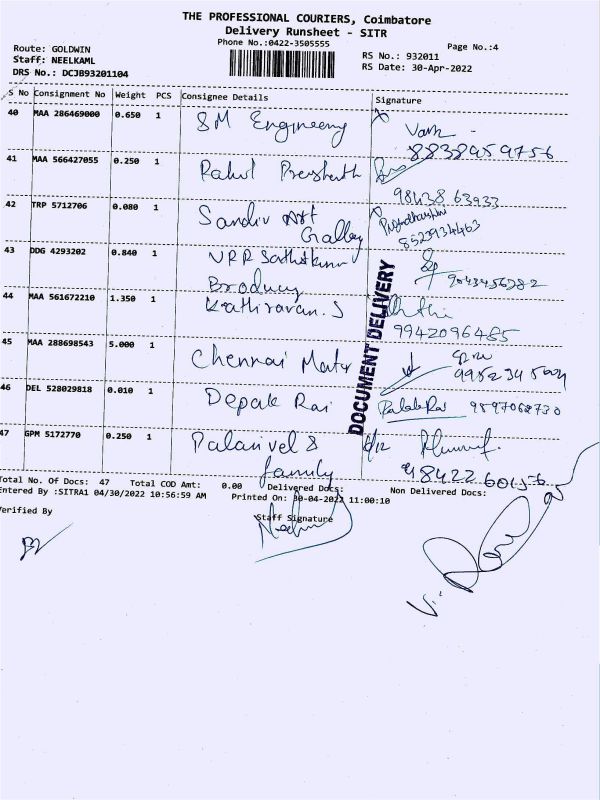 THE PROFESSIONAL COURIERS, Coimbatore
Delivery Runsheet - SITR
Phone No.:0422-3505555
Page No.:4
Route: GOLDWIN
Staff: NEELKAML
DRS No.: DCJB93201104
RS No.: 932011
RS Date: 30-Apr-2022
S No Consignment No Weight PCS Consignee Details Signature
40 MAA 286469000 0.650 1 SM Engineering
8838959756
41 MAA 566427055 0.250 1 Rahul
98438 63933
42 TRP 5712706 0.080 1 Sandiv Art Gallery
8523934463
43 DDG 4293202 0.840 1 VRR Sathishkumar
9043456282
44 MAA 561672210 1.350 1 Kathiravan.S
9942096485
45 MAA 288698543 5.000 1 Chennai
46 DEL 528029818 0.010 1 Depak Rai 9597068730
47 GPM 5172770 0.250 1 Palanivel &
family
98422 60156
DOCUMENT DELIVERY
Total No. Of Docs: 47 Total COD Amt: 0.00 Delivered Docs: Non Delivered Docs:
Entered By :SITRA1 04/30/2022 10:56:59 AM Printed On: 30-04-2022 11:00:10
Verified By
Staff Signature